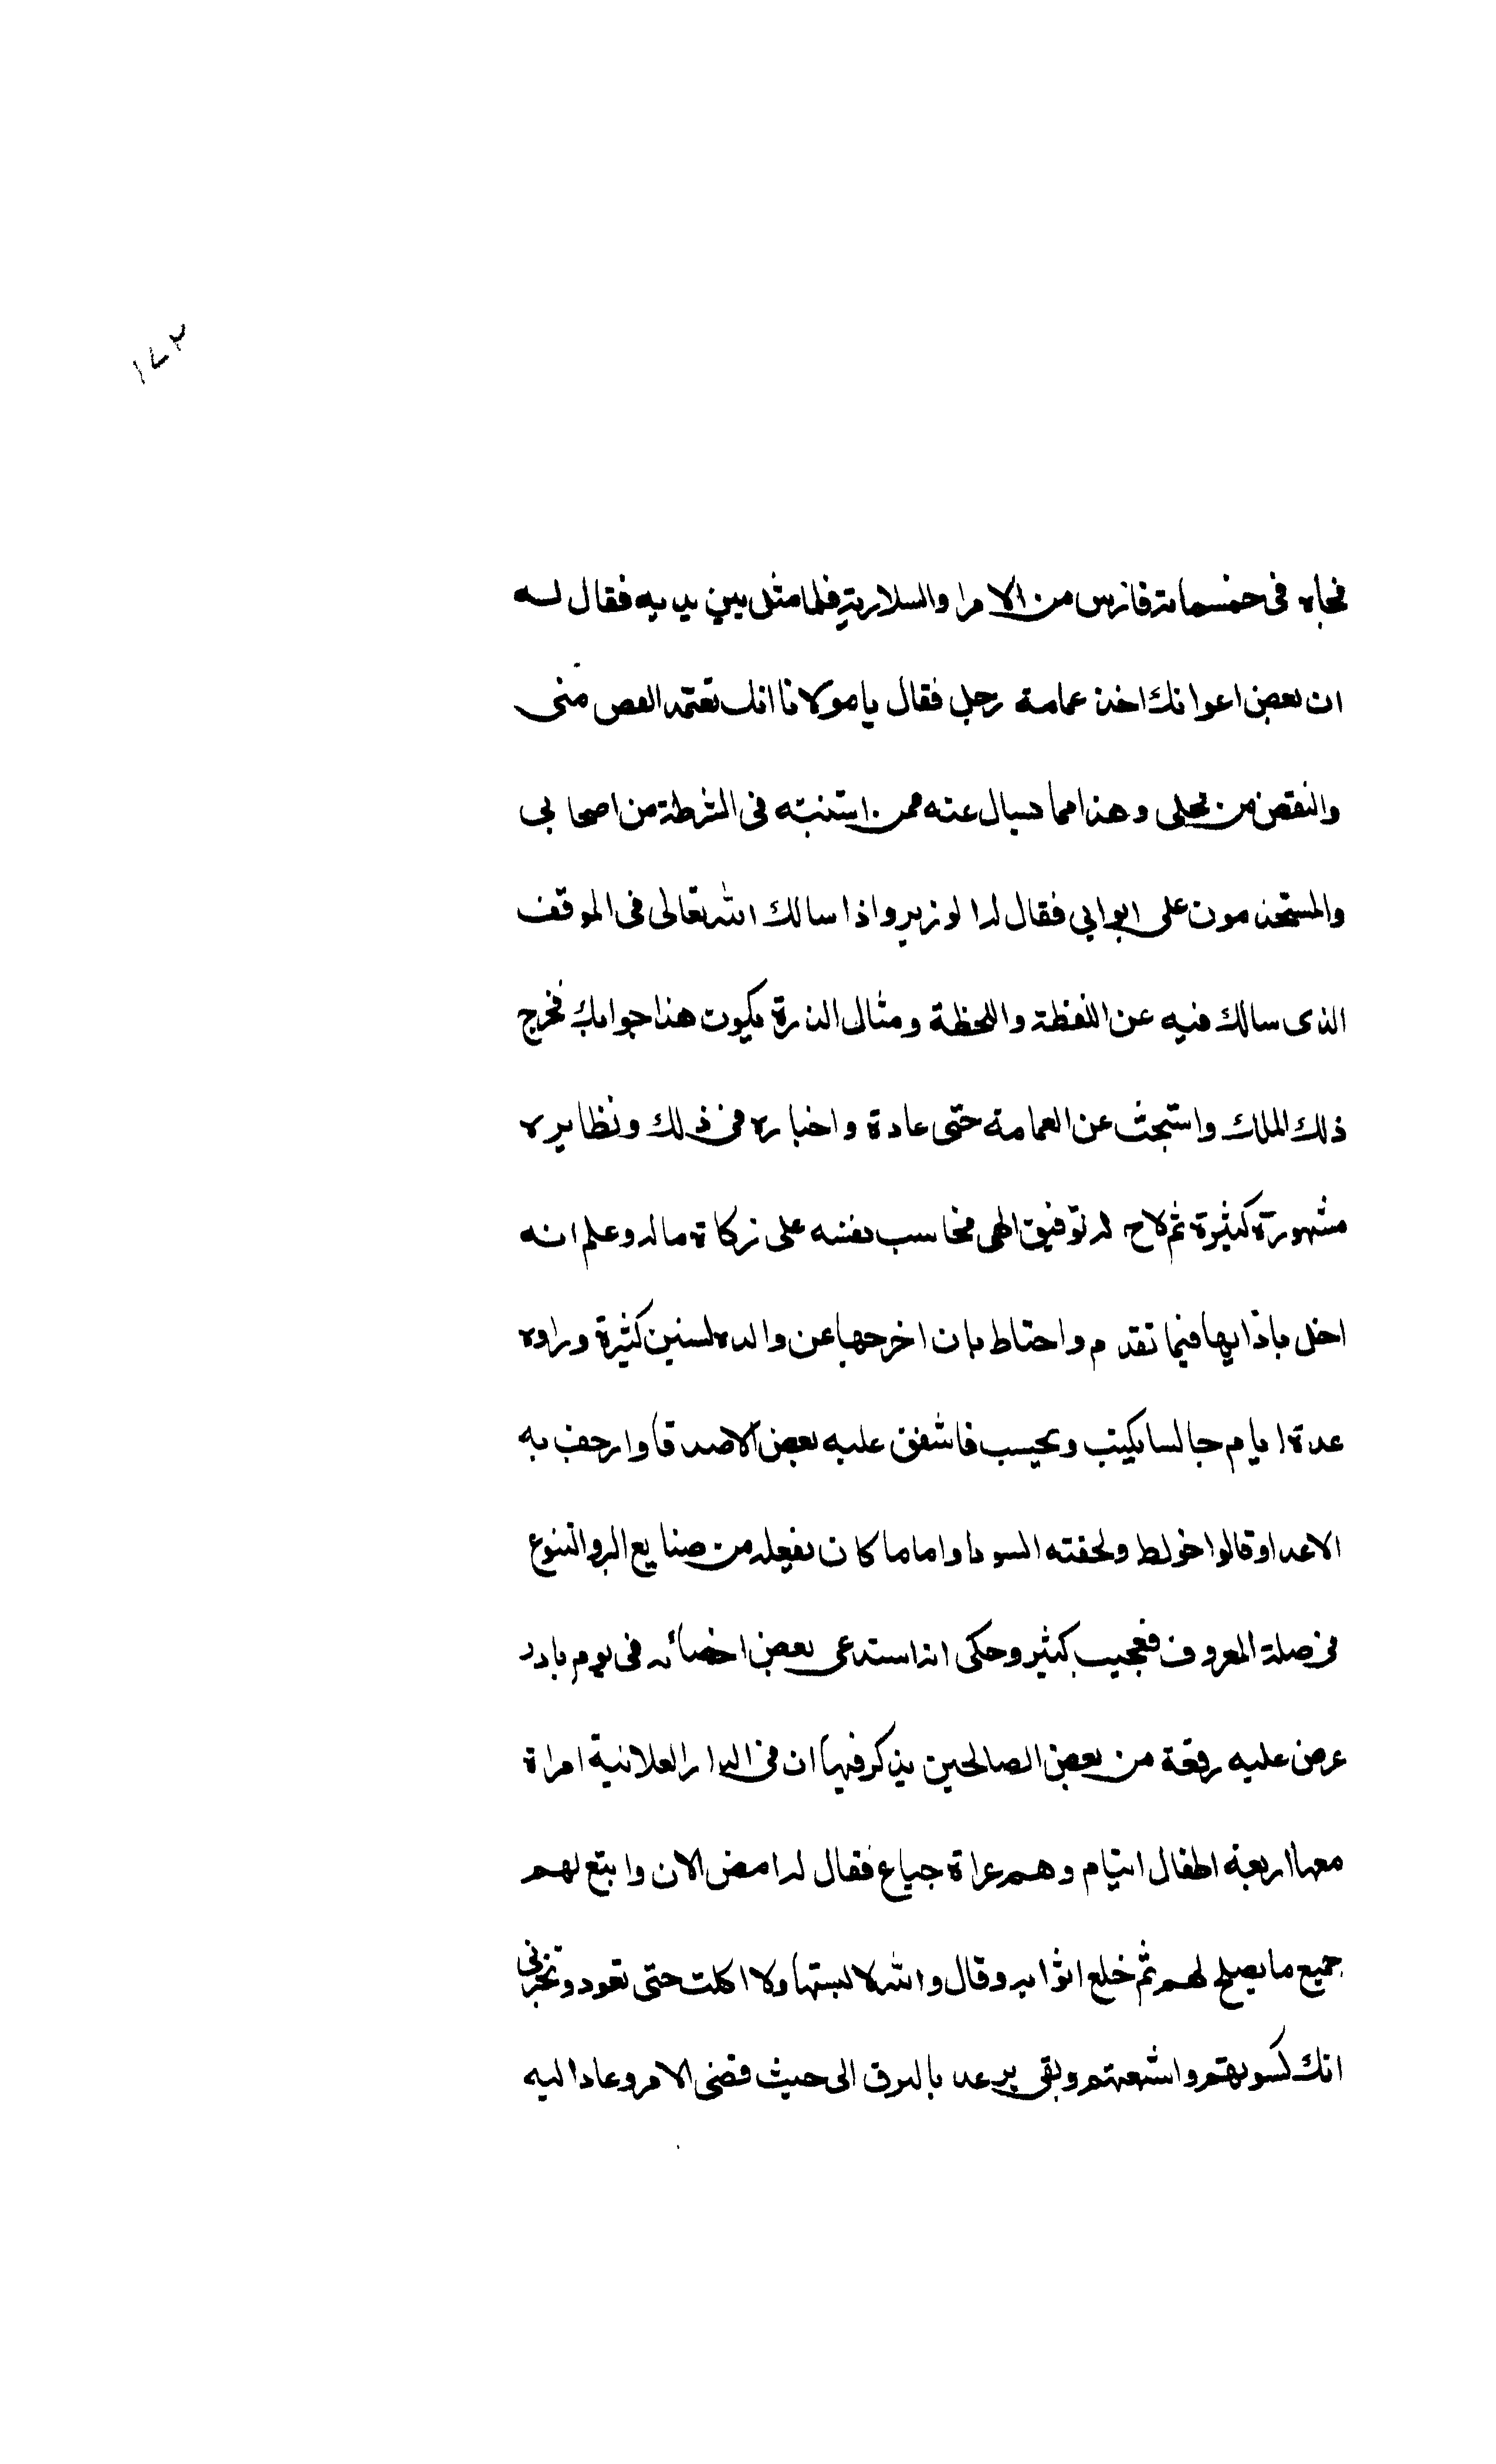 ١٧٢
فجاه في خمسمائة فارس من الامرا والسلارية فلما مثل بين يديه فقال له
ان بعض اعوانك اخذ عمامة رجل فقال يا مولانا انك تعتمد الغض مني
والنقص من محلي وهذا مما يسال عنه ممن استنبته في الشرطة من اصحابي
والمستخدمون على ابوابي فقال له الوزير واذا سالك الله تعالى في الموقف
الذي سالك فيه عن اللفظة واللحظة ومثال الذرة يكون هذا جوابك فخرج
ذلك الملك واستبحث عن العمامة حتى عادة واخباره في ذلك ونظايره
مشهورة كثيرة ثم لاح له توفيق الهي فحاسب نفسه على زكاة ماله وعلم انه
اخل باذايها فيما تقدم واحتاط بان اخرجها عن والده لسنين كثيرة وراوه
عدة ايام جالسا يكتب ويحسب فاشفق عليه بعض الاصدقا وارجف به
الاعدا وقالوا خولط ولحقته السودا واما ما كان يفعله من صنايع البر والتنوع
في صلة المعروف فعجيب كثير وحكى انه استدعى بعض اخصائه في يوم بادر
عرض عليه رقعة من بعض الصالحين يذكر فيها ان في الدار العلانية امراة
معها اربعة اطفال ايتام وهم عراة جياع فقال له امض الان وابتع لهم
جميع ما يصلح لهم ثم خلع اثوابه وقال والله لا لبستها ولا اكلت حتى تعود وتخبرني
انك كسوتهم واشبعتهم وبقي يرعد بالبرق الى حيث قضى الامر وعاد اليه